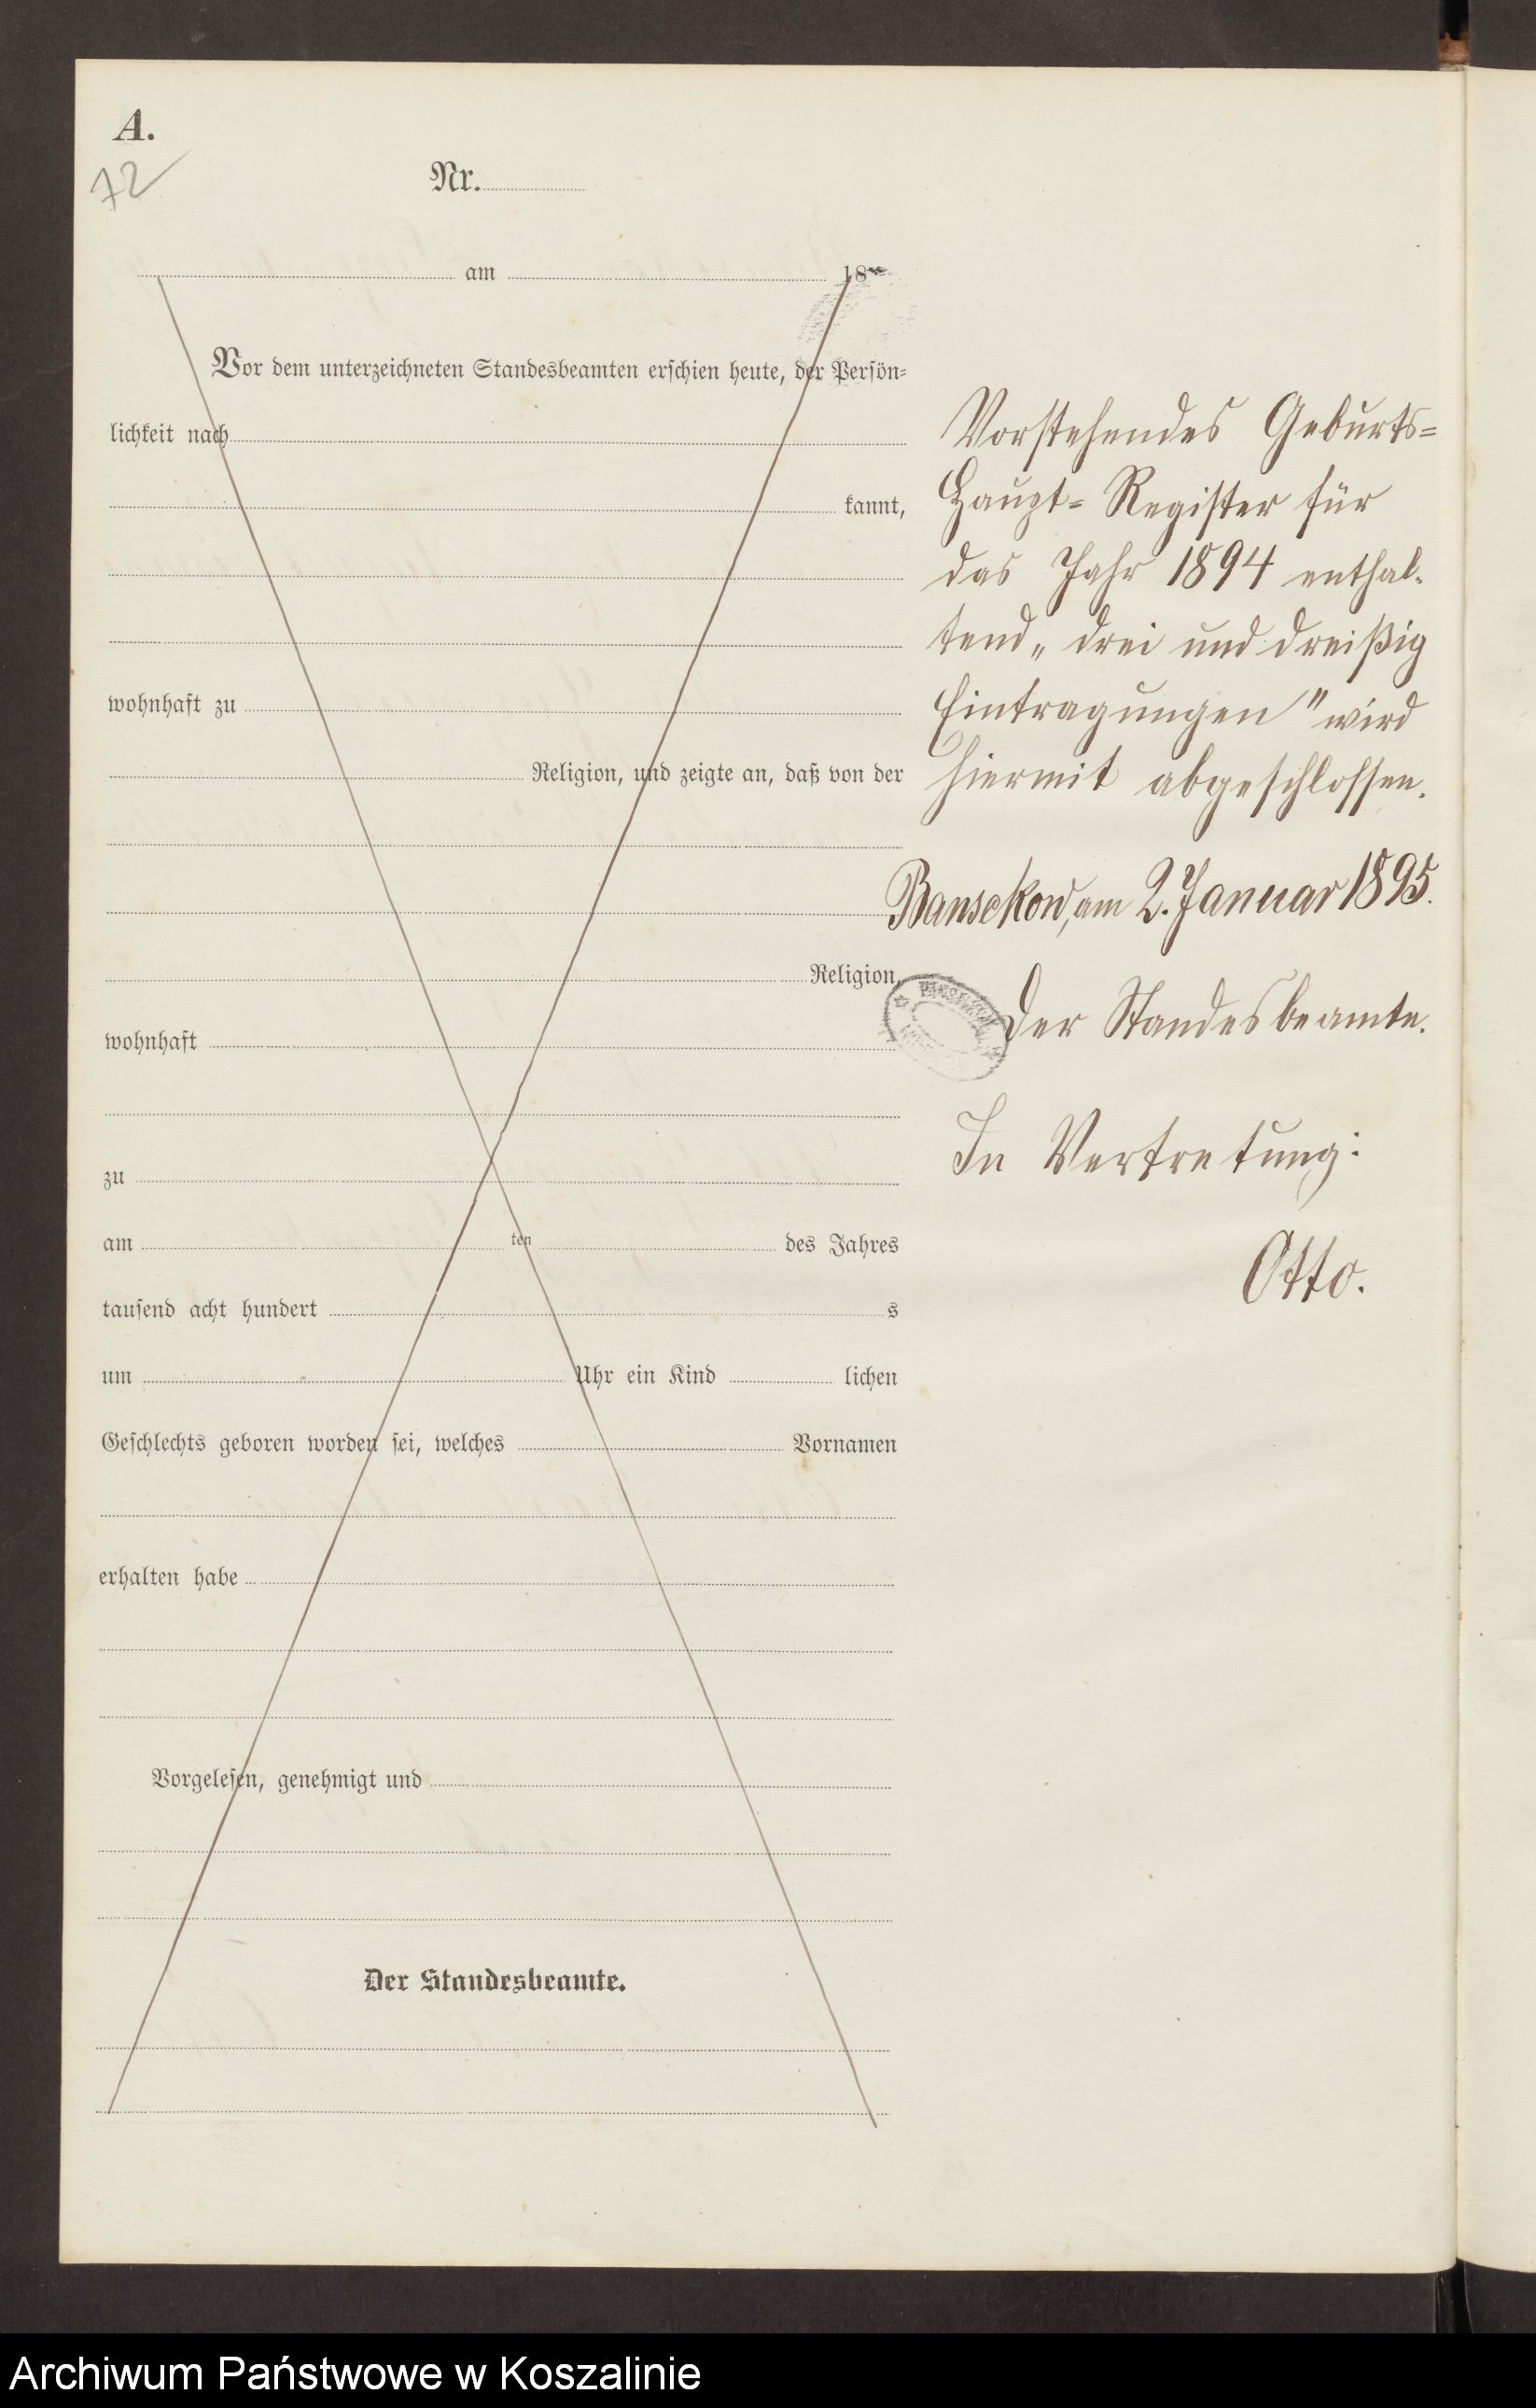 A.
72
Nr.
am 18
Vor dem unterzeichneten Standesbeamten erschien heute, der Persön-
lichkeit nach
kannt,
wohnhaft zu
Religion, und zeigte an, daß von der
Religion,
wohnhaft
zu
am ten des Jahres
tausend acht hundert s
um Uhr ein Kind lichen
Geschlechts geboren worden sei, welches Vornamen
erhalten habe
Vorgelesen, genehmigt und
Der Standesbeamte.
Vorstehendes Geburts=
Haupt= Register für
das Jahr 1894 enthal-
tend „ drei und dreißig
Eintragungen " wird
hiermit abgeschlossen.
Bansekow, am 2. Januar 1895.
Der Standesbeamte.
In Vertretung:
Otto.
Archiwum Państwowe w Koszalinie